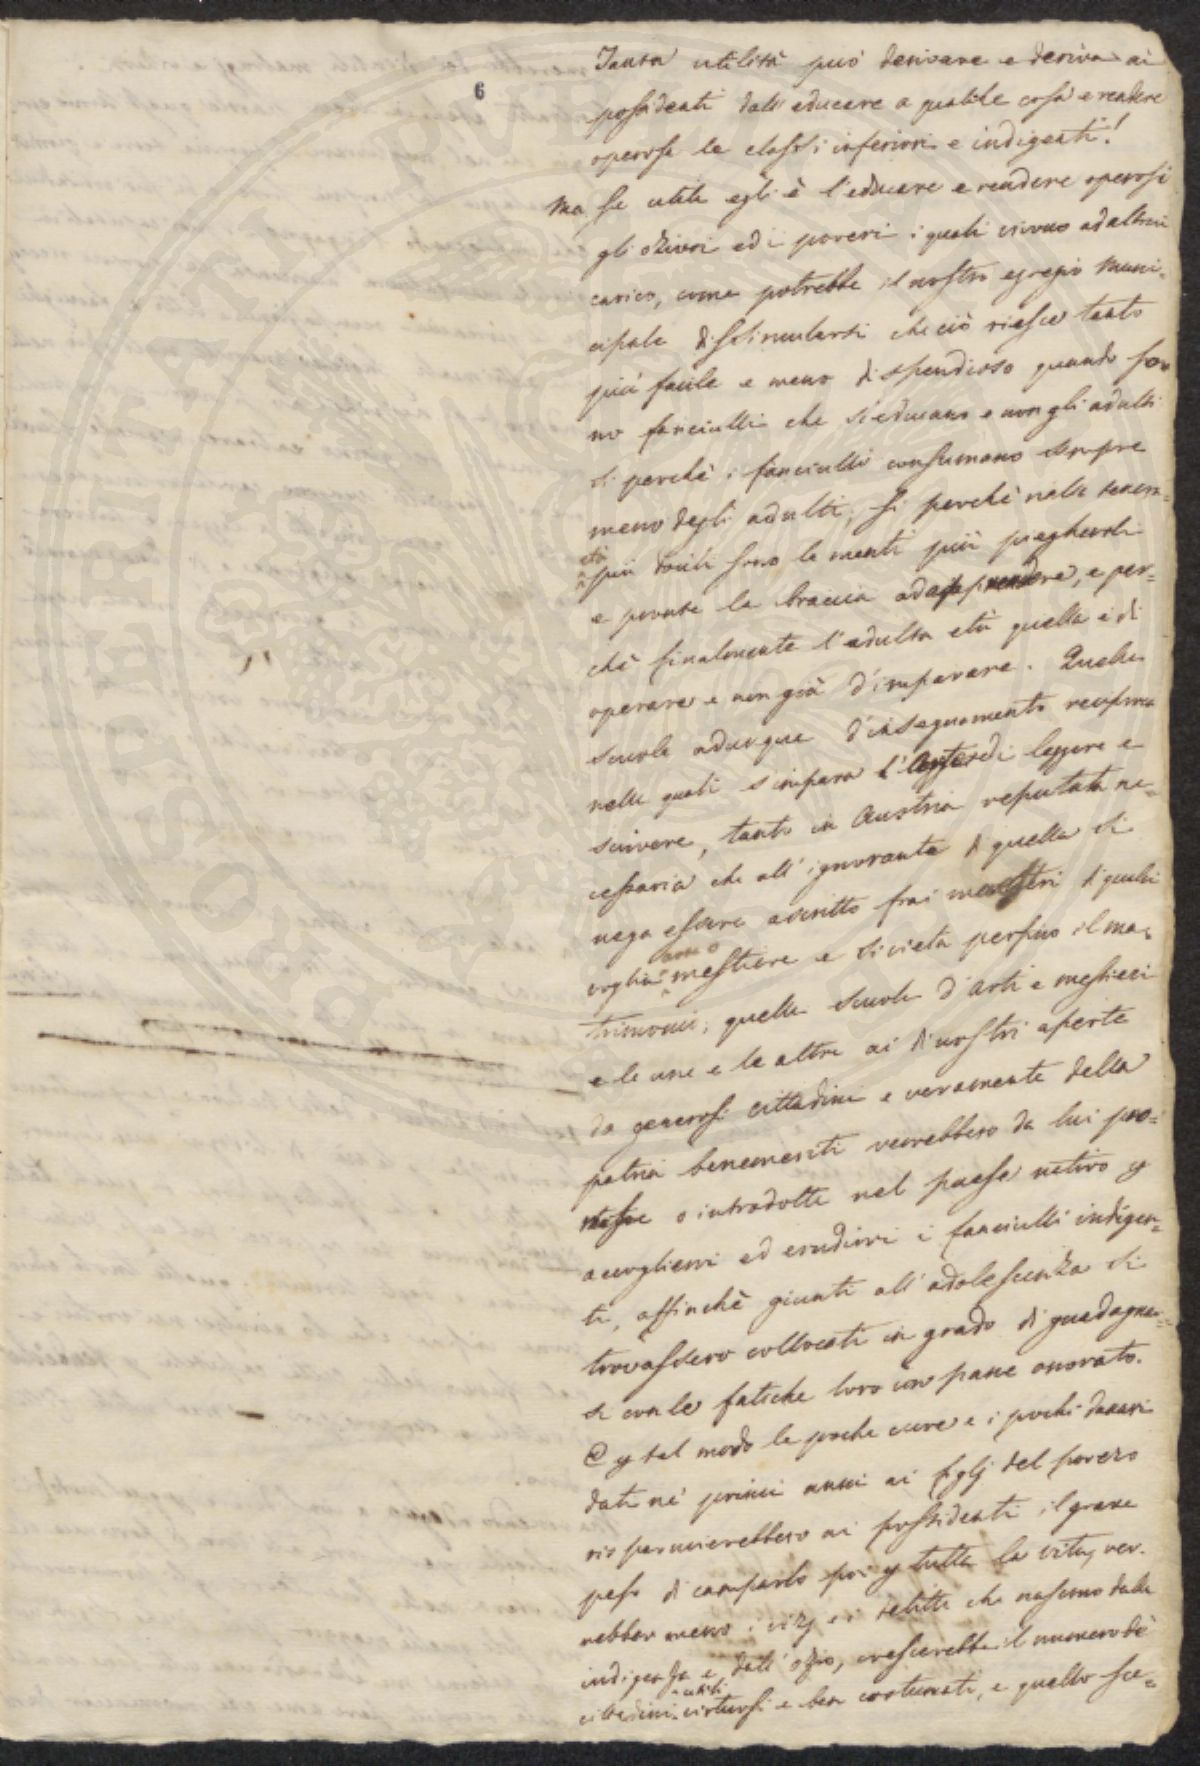 6
Tanta utilità può derivare e deriva ai
possidenti dall'educare a qualche cosa e rendere
operose le classi inferiori e indigenti!
Ma se utile egli è l'educare e rendere operosi
gli oziosi ed i poveri i quali vivono ad altrui
carico, come potrebbe il nostro egregio Muni-
cipale dissimularsi che ciò riesce tanto
più facile e meno dispendioso quando so-
no fanciulli che si educano e non gli adulti
si perchè i fanciulli consumano sempre
meno degli adulti, si perchè nella tenera
età
più docili sono le menti più pieghevoli
e pronte le braccia ad apprendere, e per-
chè finalmente l'adulta età quella è di
operare e non già d'imparare. Quelle
scuole adunque d'insegnamento reciproco
nelle quali s'impara l'arte di leggere e
scrivere, tanto in Austria reputata ne-
cessaria che all'ignorante di quella si
nega essere ascritto frai maestri di qualsi
arte o
voglia mestiere e si vieta perfino il ma-
trimonio; quelle scuole d'arti e mestieri
e le une e le altre ai dì nostri aperte
da generosi cittadini e veramente della
patria benemeriti verrebbero da lui pro-
mosse o introdotte nel paese nativo p
accogliervi ed erudirvi i fanciulli indigen-
ti, affinchè giunti all'adolescenza si
trovassero collocati in grado di guadagnar-
si con le fatiche loro un pane onorato.
E p tal modo le poche cure e i pochi danari
dati nè primi anni ai figlj del povero
risparmierebbero ai possidenti il grave
peso di camparlo poi p tutta la vita, ver-
rebber meno i vizj e i delitti che nascono dalla
indigenza e dall'ozio, crescerebbe il numero dè
utili
cittadini virtuosi e ben costumati, e quello sce-